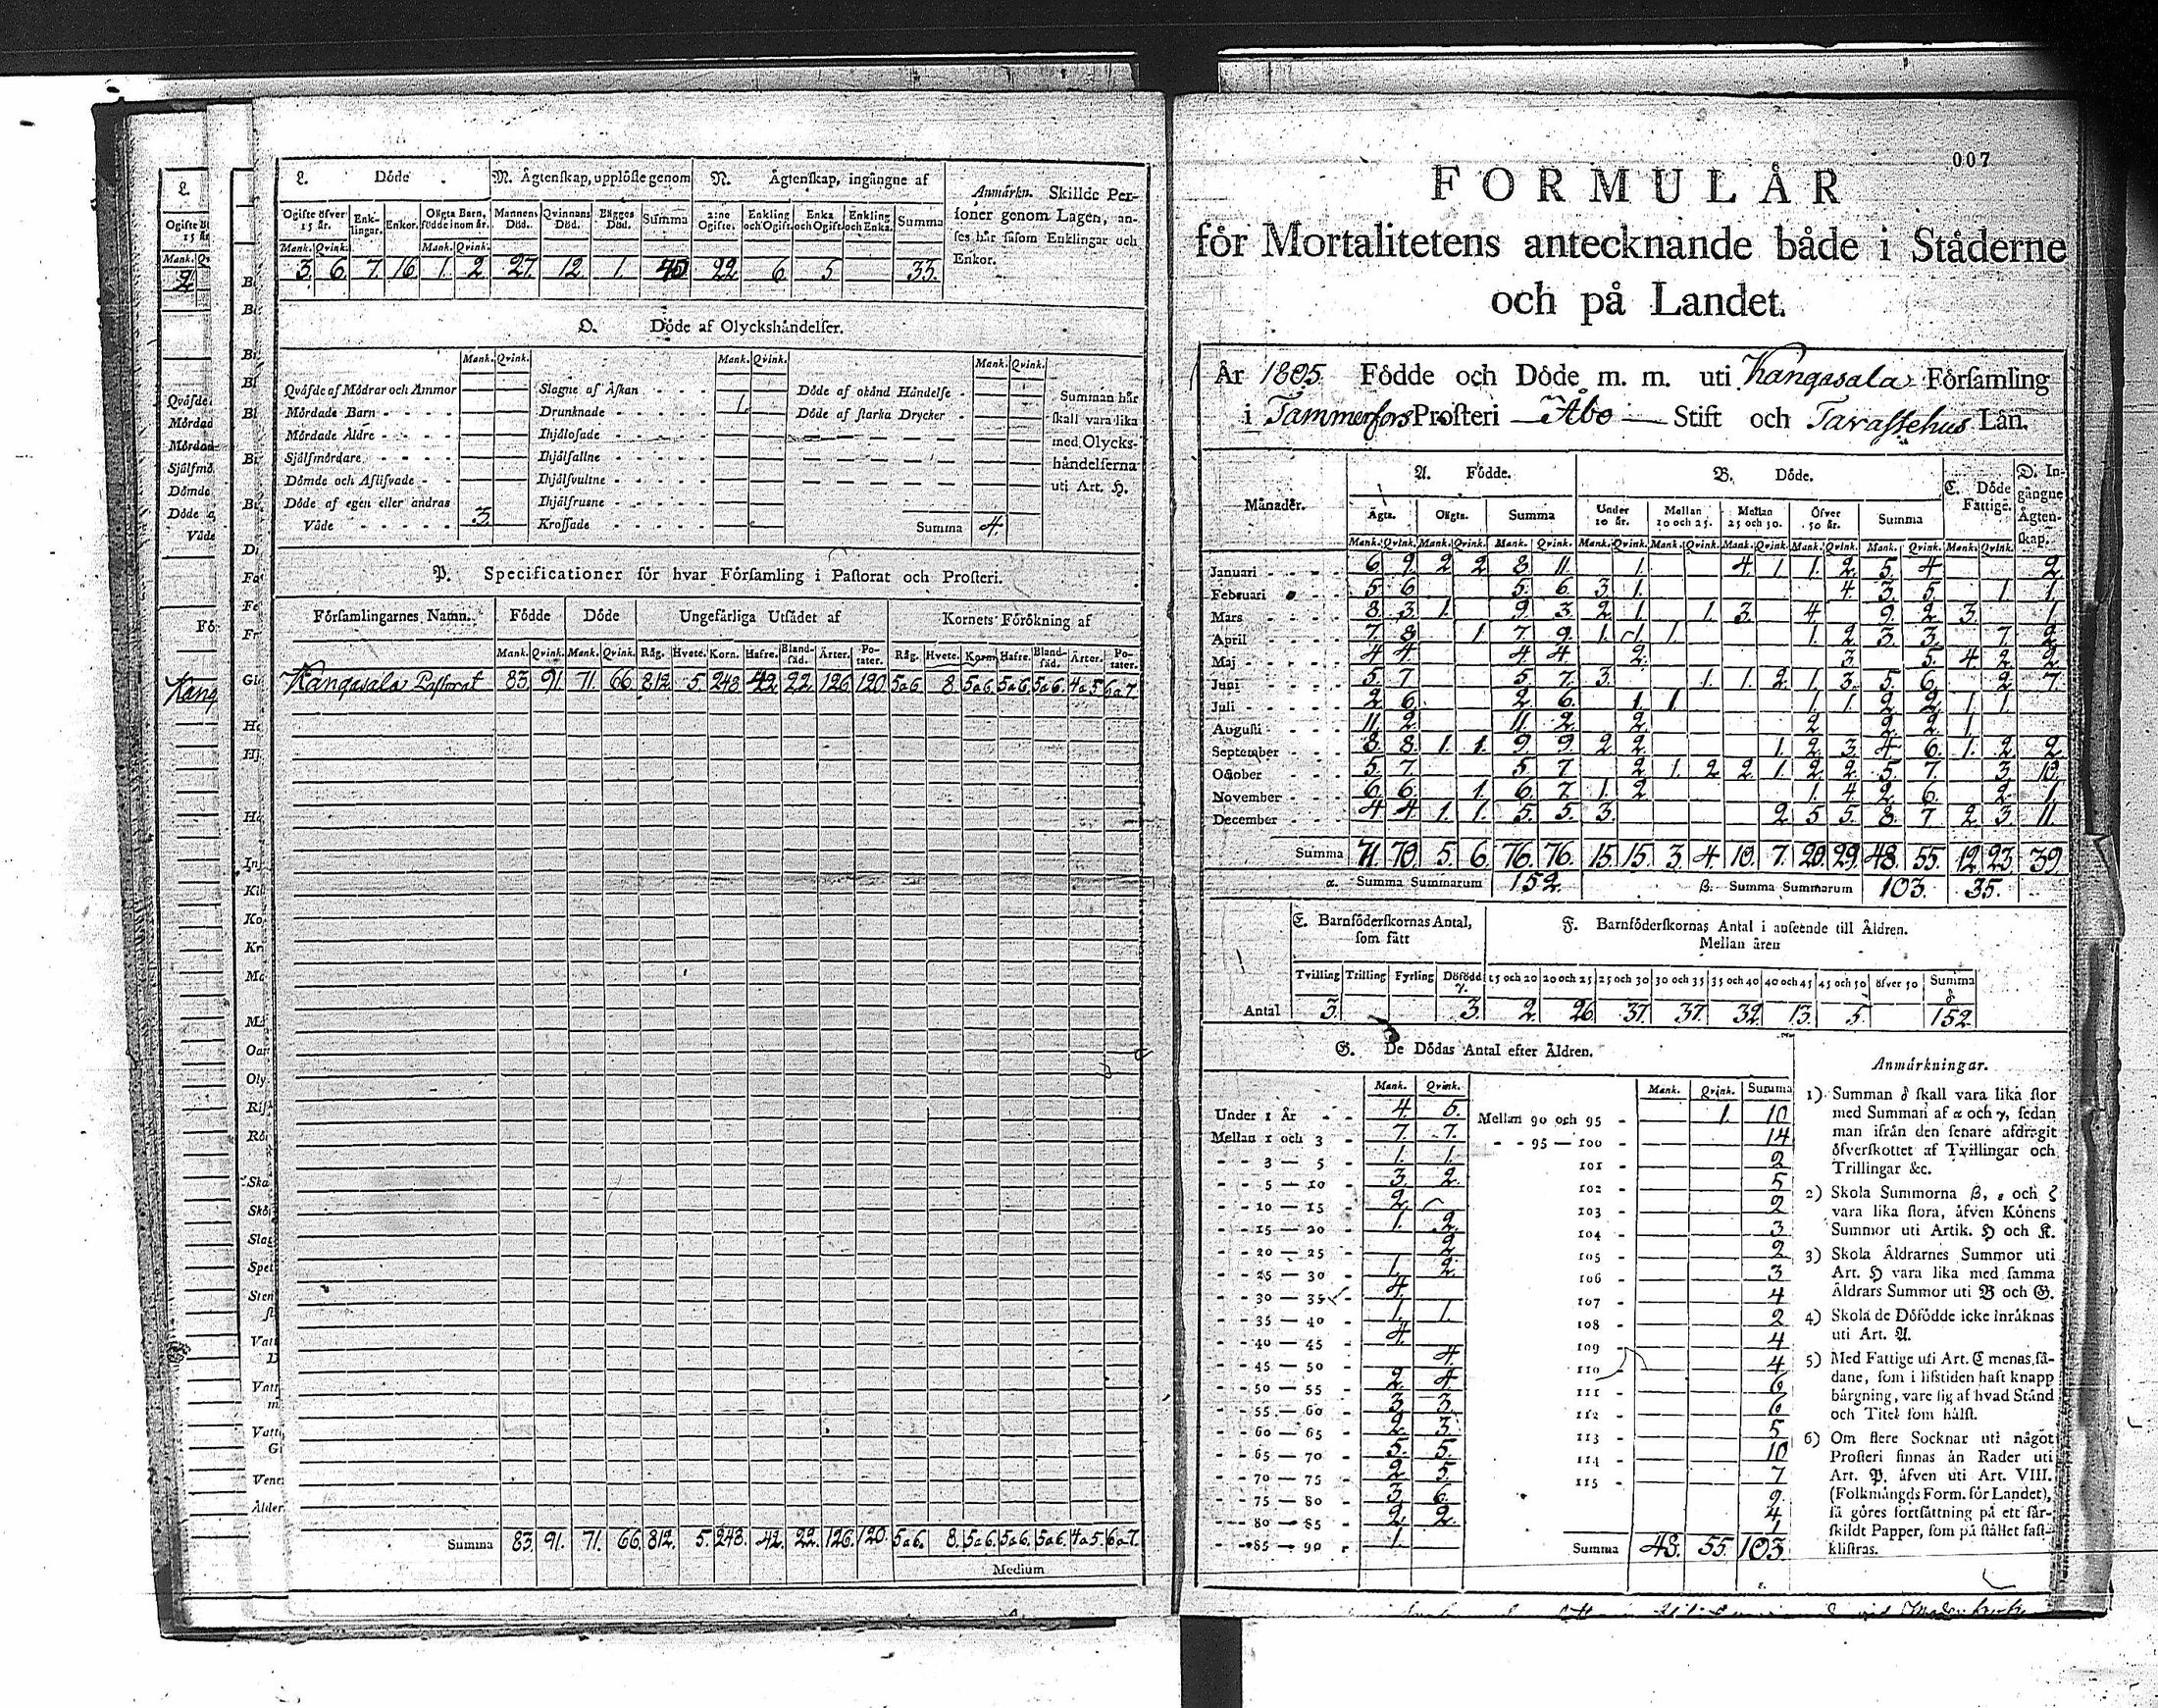 L. Döde
M. Ägtenskap, upplöste genom
N. Ägtenskap, ingångne af
Anmärkn. Skillde Personer genom Lagen, anses här såsom Enklingar och Enkor.
Ogifte öfver 15 år. Enklingar. Enkor. Oägta Barn, födde inom år. Mannens Död. Qvinnans Död. Bägges Död. Summa 2:ne Ogifte. Enkling och Ogift. Enka och Ogift. Enkling och Enka. Summa
Mank. Qvink. Mank. Qvink.
3. 6. 7. 16. 1. 2. 27. 12. 1. 40 22 6. 5. 33.
O. Döde af Olyckshändelser.
Mank. Qvink. Mank. Qvink. Mank. Qvink.
Qväfde af Mödrar och Ammor
Mördade Barn
Mördade Äldre
Självmördare
Dömde och Aflifvade
Döde af egen eller andras
Våde 3.
Slagne af Åskan
Drunknade 1.
Ihjälosade
Ihjälfallne
Ihjälsvultne
Ihjälfrusne
Krossade
Döde af okänd Händelse
Döde af starka Drycker
Summa 4.
Summan här
skall vara lika
med Olycks-
händelserna
uti Art. H.
P. Specificationer för hvar Församling i Pastorat och Prosteri.
Församlingarnes Namn. Födde Döde Ungefärliga Utsädet af Kornets Förökning af
Mank. Qvink. Mank. Qvink. Råg. Hvete. Korn. Hafre. Blandsäd. Ärter. Potater. Råg. Hvete. Korn. Hafre. Blandsäd. Ärter. Potater.
Kangasala Pastorat 83. 91. 71. 66 812. 5. 243. 42. 22. 126. 120. 5a6. 8. 5a6. 5a6. 5a6. 4a5. 6a7.
Summa 83. 91. 71. 66. 812. 5. 243. 42. 22. 126. 120. 5a6. 8. 5a6. 5a6. 5a6. 4a5. 6a7.
Medium
007
FORMULÅR
för Mortalitetens antecknande både i Städerne
och på Landet.
År 1805 Födde och Döde m. m. uti Kangasala Församling
i Tammerfors Prosteri Åbo Stift och Tavastehus Län.
Månader. A. Födde. B. Döde. C. Döde Fattige. D. Ingångne Ägtenskap.
Ägta. Oägta. Summa Under 10 år. Mellan 10 och 25. Mellan 25 och 50. Öfver 50 år. Summa
Mank. Qvink. Mank. Qvink. Mank. Qvink. Mank. Qvink. Mank. Qvink. Mank. Qvink. Mank. Qvink. Mank. Qvink. Mank. Qvink.
Januari 6 9. 2 2 8 11. 1. 4. 1. 1. 2. 5. 4 2
Februari 5 6 5. 6. 3. 1. 4. 3. 5. 1 1.
Mars 8. 3. 1. 9. 3. 2. 1. 1. 3. 4. 9. 2. 3. 1.
April 7. 8. 1. 7. 9. 1. 1. 1. 1. 2. 3. 3. 7. 2
Maj 4 4. 4. 4. 2. 3. 5. 4 2. 2.
Juni 5. 7 5. 7. 3. 1. 1. 2. 1. 3. 5. 6. 2. 7.
Juli 2. 6. 2. 6. 1. 1 1. 1. 2. 2. 1. 1.
Augusti 11. 2. 11. 2. 2. 2 2. 2. 1.
September 8. 8. 1. 1. 9. 9. 2 2. 1. 2. 3. 4. 6. 1. 2. 2
October 5. 7. 5. 7 2. 1. 2 2. 1. 2. 2. 5. 7. 3. 10.
November 6 6. 1. 6. 7. 1. 2. 1. 4. 2. 6. 2. 1.
December 4 4. 1. 1. 5. 5. 3. 2 5 5. 8. 7 2. 3. 11.
Summa 71. 70. 5. 6. 76. 76. 15. 15. 3. 4. 10. 7. 20. 29. 48. 55. 12. 23. 39.
α. Summa Summarum 152. β. Summa Summarum 103. 35.
E. Barnföderskornas Antal, som fått
F. Barnföderskornas Antal i anseende till Åldren.
Mellan åren
Tvilling Trilling Fyrling Dödfödd γ. 15 och 20 20 och 25 25 och 30 30 och 35 35 och 40 40 och 45 45 och 50 öfver 50 Summa δ
Antal 3. 3. 2. 26 37. 37. 32. 13. 5. 152.
G. De Dödas Antal efter Åldren.
Mank. Qvink. Mank. Qvink. Summa
Under 1 År 4. 5. Mellan 90 och 95 1. 10
Mellan 1 och 3 7. 7. 95 — 100 14
3 — 5 1. 1. 101 2
5 — 10 3. 2. 102 5
10 — 15 2. 103 2
15 — 20 1. 2. 104 3
20 — 25 2. 105 2
25 — 30 1. 2. 106 3
30 — 35 4. 107 4
35 — 40 1. 1. 108 2
40 — 45 4. 109 4
45 — 50 4. 110 4
50 — 55 2. 4. 111 6
55 — 60 3. 3. 112 6
60 — 65 2. 3. 113 5
65 — 70 5. 5. 114 10
70 — 75 2. 5. 115 7
75 — 80 3. 6. 9
80 — 85 2. 2. 4
85 — 90 1. 1
Summa 48. 55. 103
Anmärkningar.
1) Summan δ skall vara lika stor
med Summan af α och γ, sedan
man ifrån den senare afdragit
öfverskottet af Tvillingar och
Trillingar &c.
2) Skola Summorna β, ε och ζ
vara lika stora, äfven Könens
Summor uti Artik. H och K.
3) Skola Åldrarnes Summor uti
Art. H vara lika med samma
Åldrars Summor uti B och G.
4) Skola de Dödfödde icke inräknas
uti Art. A.
5) Med Fattige uti Art. C menas så-
dane, som i lifstiden haft knapp
bärgning, vare sig af hvad Stånd
och Titel som hälst.
6) Om flere Socknar uti något
Prosteri finnas än Rader uti
Art. P. äfven uti Art. VIII.
(Folkmängds Form. för Landet),
så göres fortsättning på ett sär-
skildt Papper, som på stället fast-
klistras.